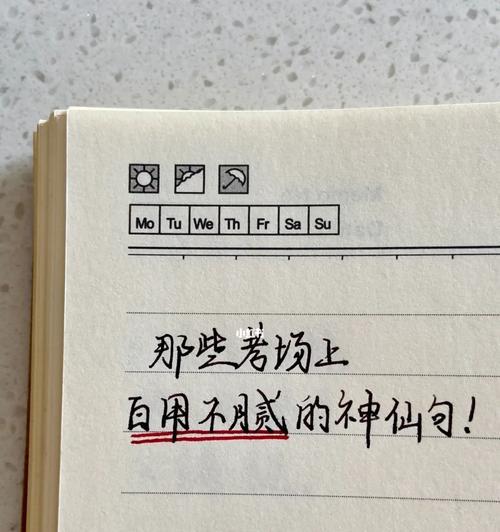 Mo Tu We Th Fr Sa Su
那些考场上
小红书
百用不腻的神仙句!